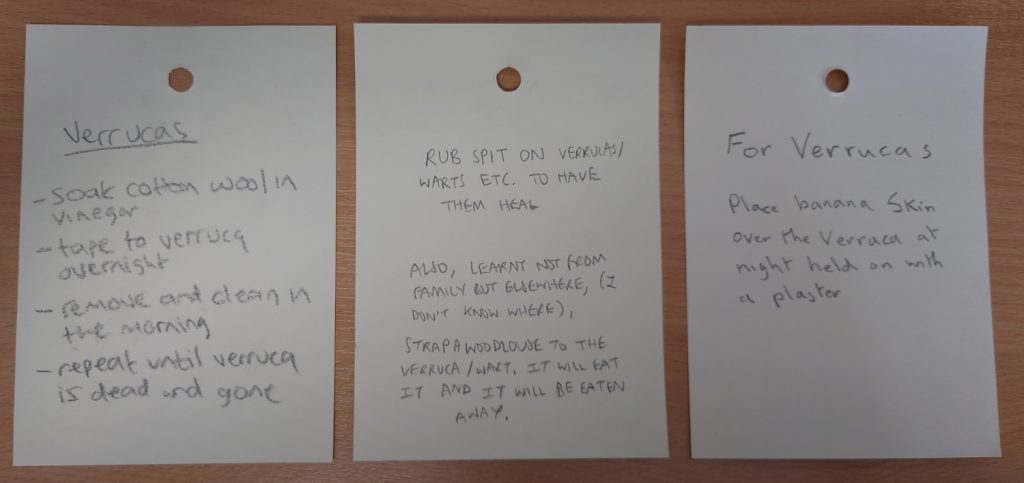 Verrucas
- soak cotton wool in
vinegar
- tape to verruca
overnight
- remove and clean in
the morning
- repeat until verruca
is dead and gone
RUB SPIT ON VERRUCAS/
WARTS ETC. TO HAVE
THEM HEAL
ALSO, LEARNT NOT FROM
FAMILY BUT ELSEWHERE, (I
DON'T KNOW WHERE),
STRAP A WOODLOUSE TO THE
VERRUCA/WART. IT WILL EAT
IT AND IT WILL BE EATEN
AWAY.
For Verrucas
Place banana Skin
over the Verruca at
night held on with
a plaster